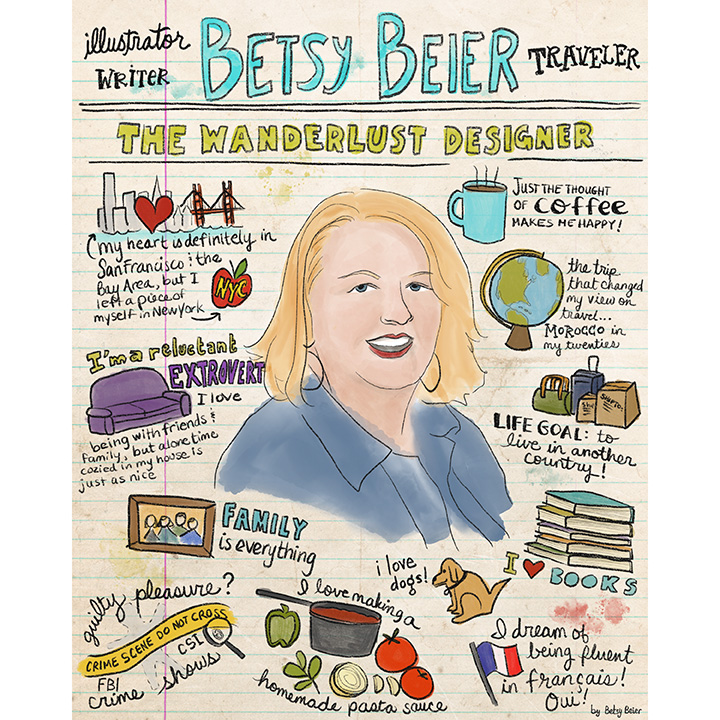 illustrator
WRiTER
BETSY BEIER
TRAVELER
THE WANDERLUST DESIGNER
my heart is definitely in
San Francisco & the
Bay Area, but I
left a piece of
myself in New York
NYC
JUST THE THOUGHT
OF COFFEE
MAKES ME HAPPY!
the trip
that changed
my view on
travel...
MOROCCO in
my twenties
I'm a reluctant
EXTROVERT
I love
being with friends &
family, but alone time
cozied in my house is
just as nice
LIFE GOAL: to
live in another
country!
FAMILY
is everything
i love
dogs!
I ❤ BOOKS
guilty pleasure?
CRIME SCENE DO NOT CROSS
CSI
FBI
crime shows
I love making a
homemade pasta sauce
I dream of
being fluent
in français!
Oui!
by Betsy Beier